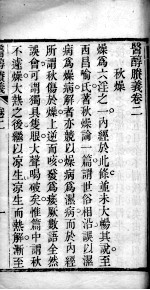 醫醇賸義卷二
秋燥
燥為六淫之一內經於此條並未大暢其說至
西昌喻氏著秋燥論一篇謂世俗相沿誤以溼
病為燥病解者亦競以燥病為溼病而於內經
所謂秋傷於燥上逆而咳發為痿厥數語全然
誤會可謂獨具隻眼大聲喝破矣惟篇中謂秋
不遽燥大熱之後繼以涼生涼生而熱解漸至
醫醇賸義
卷二
一